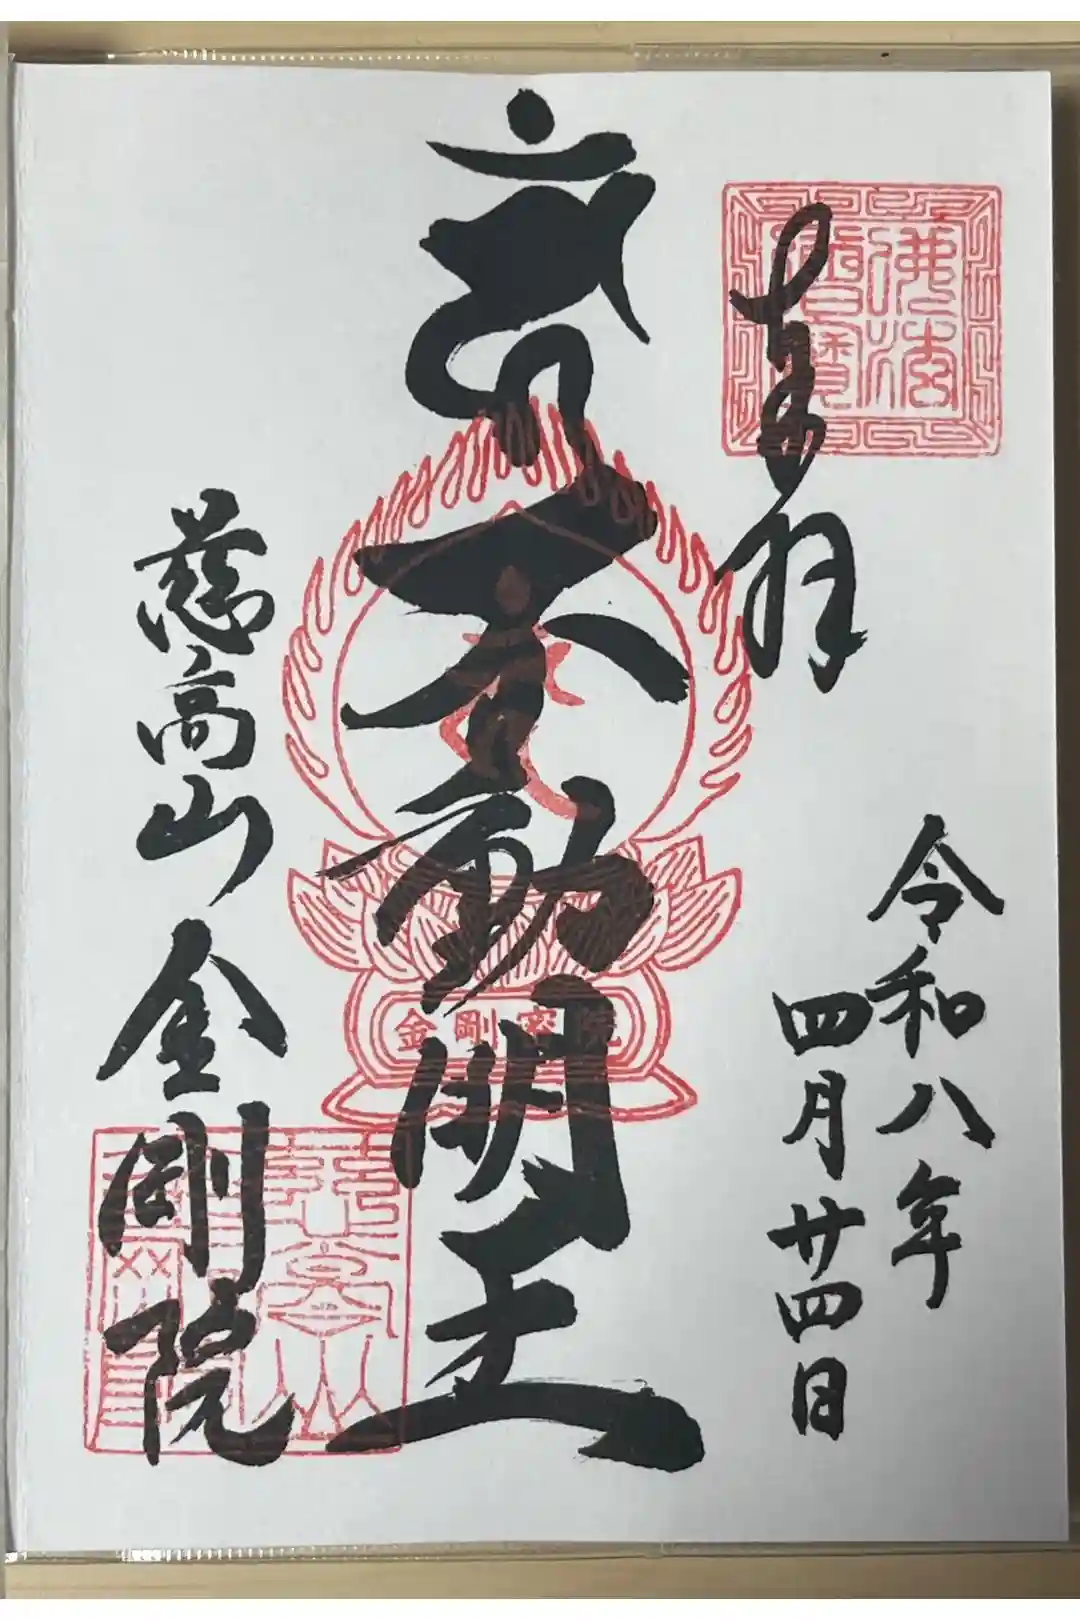 奉拝
令和八年
四月廿四日
不動明王
金剛密院
慈高山 金剛院
佛法僧寳